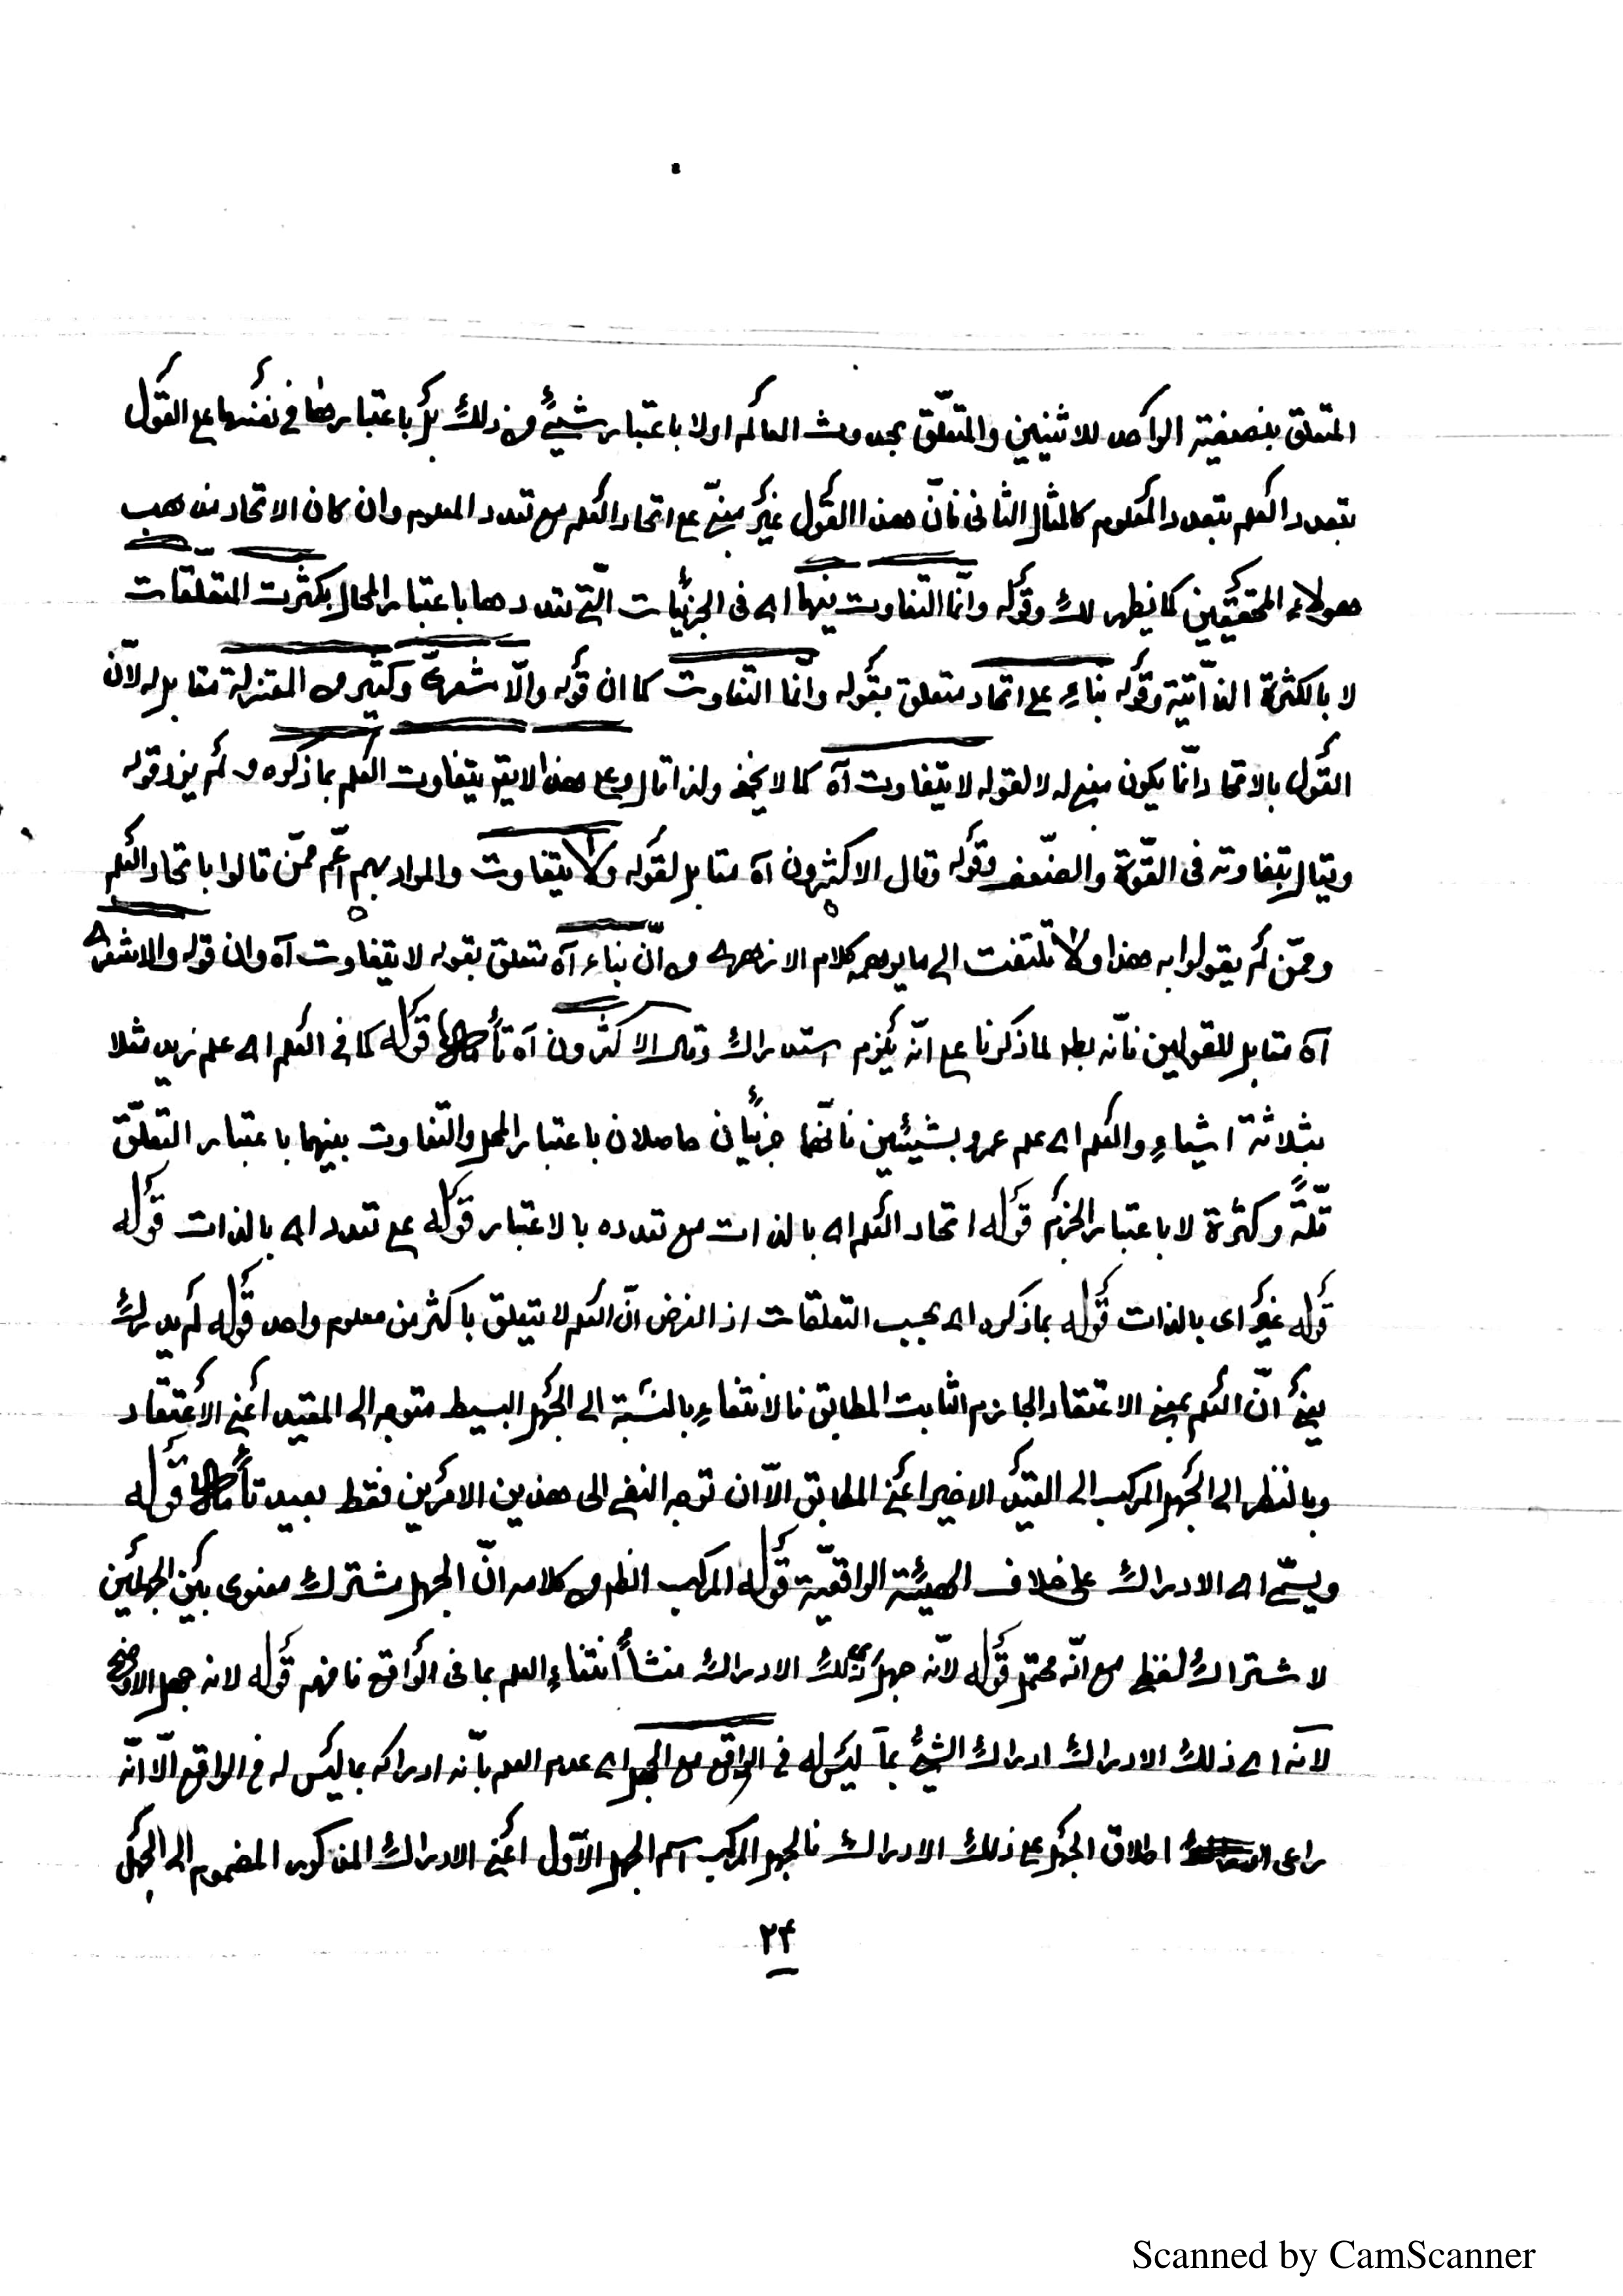 المتعلق بنصفية الواحد للاثنين والمتعلّق بحدوث العالم اولا باعتبار شيئ من ذلك بل باعتبارها في نفسها على القول
بتعدد العلم بتعدد المعلوم كالمثال الثانى فانّ هذا القول غير مبنى على اتحاد العلم مع تعدد المعلوم وان كان الاتحاد مذهب
هولاء المحققين كما يظهر لك وقوله وانّما التفاوت فيها اى فى الجزئيات التى تعددها باعتبار المحال بكثرت المتعلقات
لا بالكثرة الذاتية وقوله بناء على اتحاد متعلق بقوله وانّما التفاوت كما ان قوله والاشعرى وكثير من المعتزلة مقابل له لانّ
القول بالاتحاد انّما يكون مبنى له لا لقوله لا يتفاوت آه كما لا يخفى ولذا قال وعلى هذا لا يقال يتفاوت العلم بما ذكره ولم يزد قوله
ويقال بتفاوته فى القوّة والضّعف وقوله وقال الاكثرون آه مقابل لقوله ولا يتفاوت والمراد بهم اعم ممّن قالوا باتحاد العلم
وممّن لم يقولوا به هذا ولا تلتفت الى ما يوهمه كلام الازهرى من انّ بناء آه متعلق بقوله لا يتفاوت آه وان قوله والاشعرى
آه مقابل للقولين فانّه بط لما ذكرنا على انّه يلزم استدراك وقال الاكثرون آه تأمل قوله كما فى العلم اى علم زيد مثلا
بثلاثة اشياء والعلم اى علم عمرو بشيئين فانّهما جزئيان حاصلان باعتبار المحل والتّفاوت بينهما باعتبار التعلّق
قلّة وكثرة لا باعتبار الجزم قوله اتحاد العلم اى بالذات مع تعدده بالاعتبار قوله على تعدد اى بالذات قوله
قوله غير اى بالذات قوله بما ذكر اى بحسب التعلقات اذ الفرض انّ العلم لا يتعلق باكثر من معلوم واحد قوله لم يدرك
يعنى انّ العلم بمعنى الاعتقاد الجازم الثابت المطابق فالانتفاء بالنسبة الى الجهل البسيط متوجه الى المقيد اعنى الاعتقاد
وبالنظر الى الجهل المركب الى القيد الاخير اعنى المطابق الاّ ان توجه النفى الى هذين الامرين فقط بعيد تأمل قوله
ويسمّى اى الادراك على خلاف الهيئة الواقعيّة قوله المركب الظ من كلامه انّ الجهل مشترك معنوى بين الجهلين
لا شتراك لفظى مع انّه محتمل قوله لانّه جهل ذلك الادراك منشأ انتفاء العلم بما فى الواقع فافهم قوله لانه جهل الاوضح
لانه اى ذلك الادراك ادراك الشيئ بما ليس له فى الواقع مع الجهل اى عدم العلم بانّه ادراكه بما ليس له فى الواقع الّا انّه
راعى اطلاق الجهل على ذلك الادراك فالجهل المركب اسم الجهل الاوّل اعنى الادراك المذكور المضموم الى الجهل
٢٤
Scanned by CamScanner